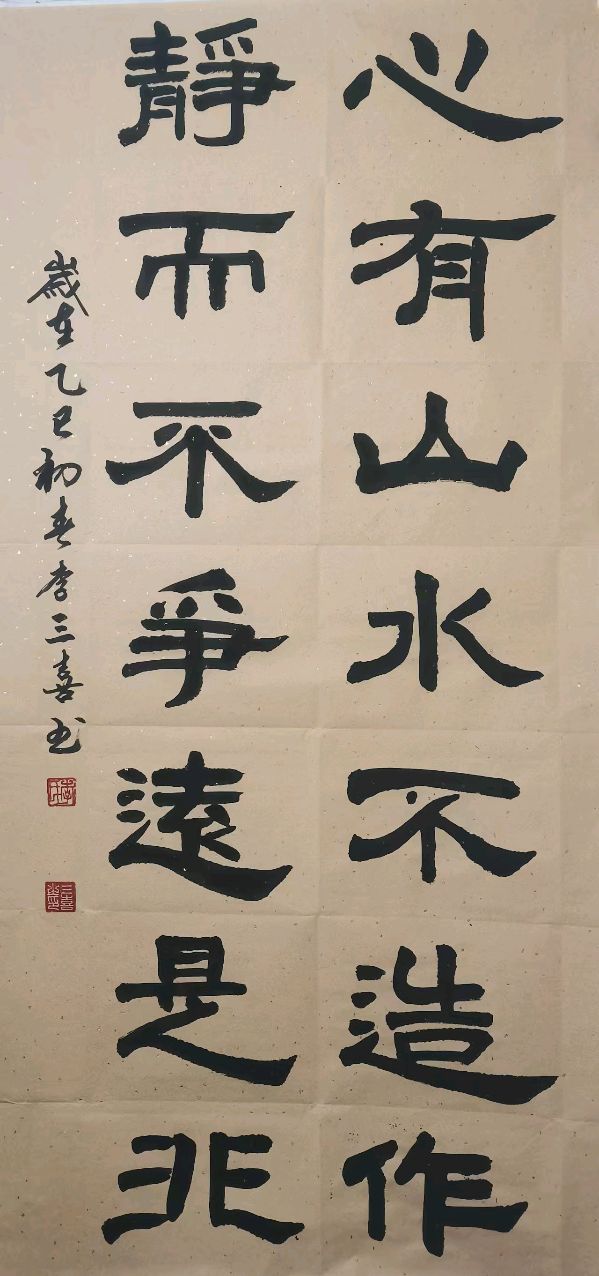 心有山水不造作
靜而不爭遠是非
歲在乙巳初春李三喜书